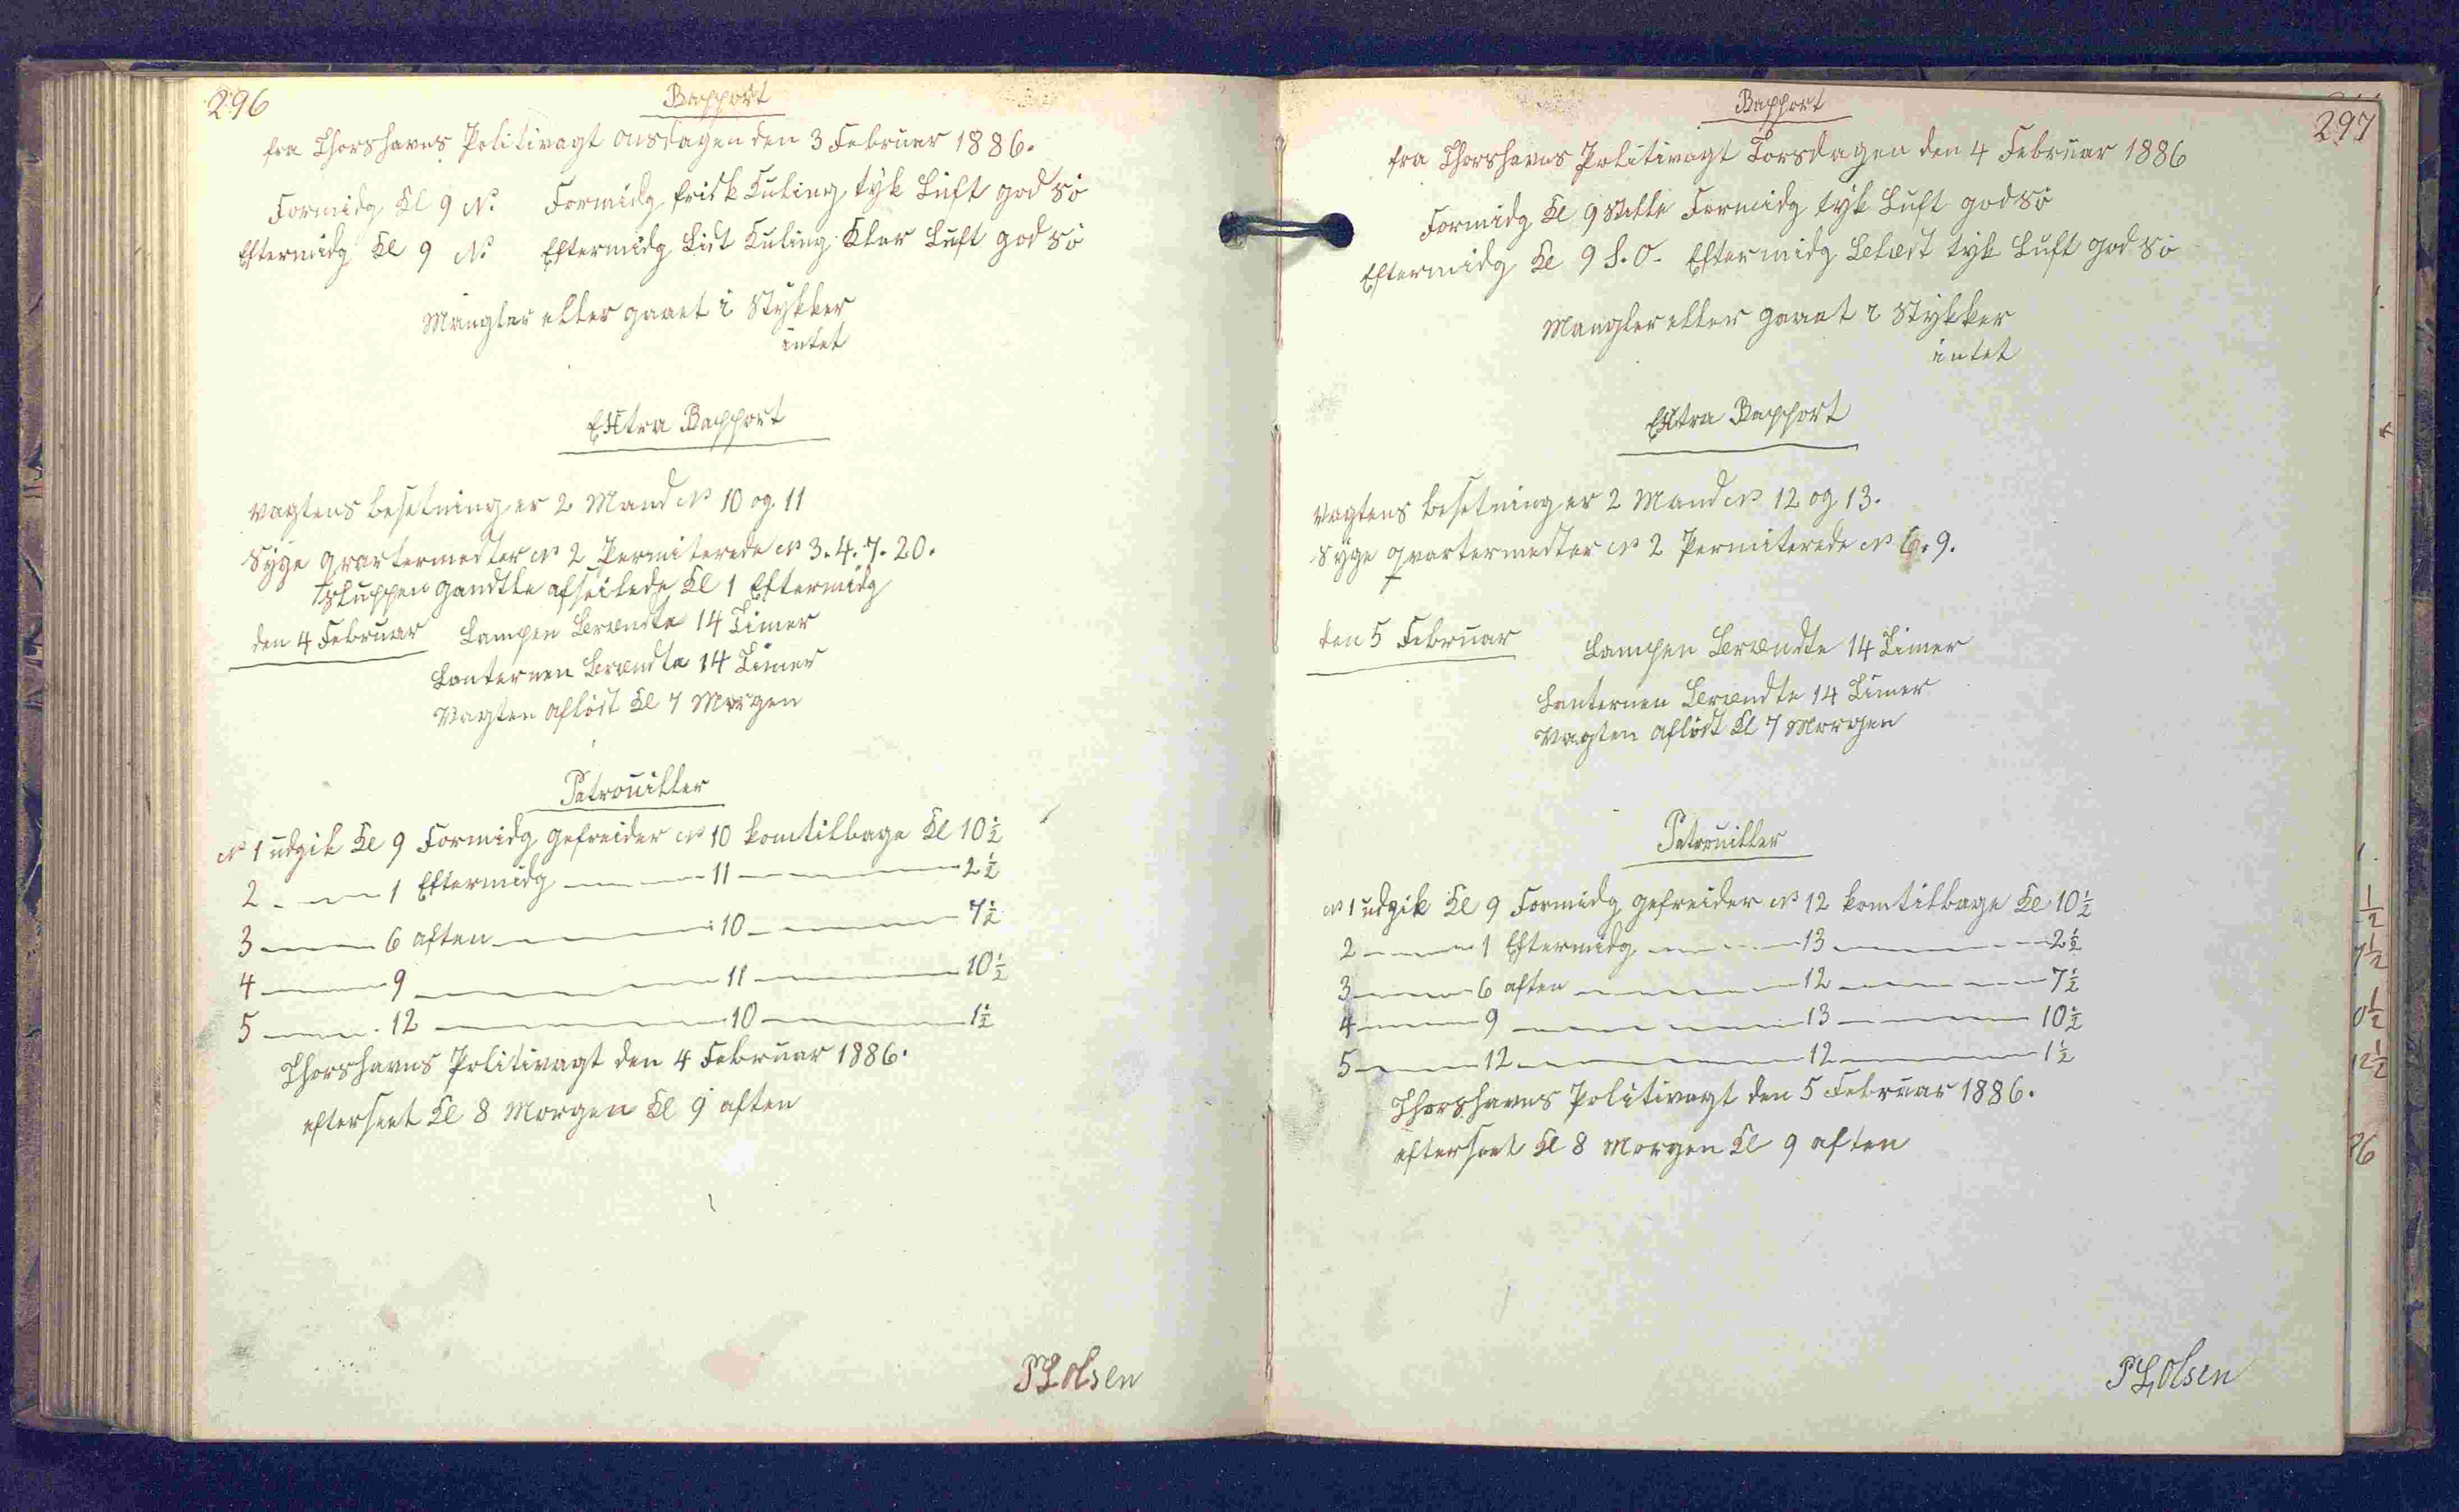 296
Rapport
fra Thorshavns Politivagt Onsdagen den 3 Februar 1886.
Formidg Kl 9 N. Formidg frisk Kuling tyk Luft god Sö
Eftermidg Kl 9 N. Eftermidg Lidt Kuling Klar Luft god Sö
Mangler eller gaaet i Stykker
intet
Extra Rapport
Vagtens besetning er 2 Mand No 10 og 11
Syge Qvartermester No 2 Permiterede No 3. 4. 7. 20.
Sluppen afseilede Kl 1 Eftermidg
den 4 Februar Lampen Brændte 14 Timer
Lanternen Brændte 14 Timer
Vagten aflöst Kl 7 Morgen
Patrouiller
No 1 udgik Kl 9 Formidg gefreider No 10 kom tilbage Kl 10½
2 — — 1 Eftermidg — — 11 — — 2½
3 — — 6 aften — — 10 — — 7½
4 — — 9 — — 11 — — 10½
5 — — 12 — — 10 — — 1½
Thorshavns Politivagt den 4 Februar 1886.
efterseet Kl 8 Morgen Kl 9 aften
P L Olsen
297
Rapport
fra Thorshavns Politivagt Torsdagen den 4 Februar 1886
Formidg Kl 9 Stille Formidg tyk Luft god Sö
Eftermidg Kl 9 S. O. Eftermidg tyk Luft god Sö
Mangler eller gaaet i Stykker
intet
Extra Rapport
Vagtens besetning er 2 Mand No 12 og 13.
Syge Qvartermester No 2 Permiterede No 6. 9.
den 5 Februar Lampen Brændte 14 Timer
Lanternen Brændte 14 Timer
Vagten aflöst Kl 7 Morgen
Patrouiller
No 1 udgik Kl 9 Formidg gefreider No 12 kom tilbage Kl 10½
2 — — 1 Eftermidg — — 13 — — 2½
3 — — 6 aften — — 12 — — 7½
4 — — 9 — — 13 — — 10½
5 — — 12 — — 12 — — 1½
Thorshavns Politivagt den 5 Februar 1886.
efterseet Kl 8 Morgen Kl 9 aften
P L Olsen